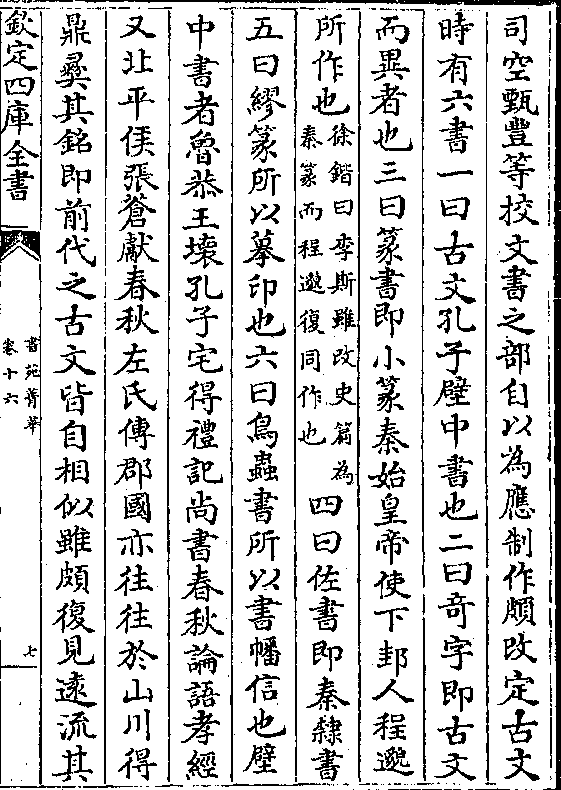 司空甄豐等挍文書之部自以為應制作頗改定古文
時有六書一曰古文孔子壁中書也二曰竒字即古文
而異者也三曰篆書即小篆秦始皇帝使下邽人程邈
所作也徐鍇曰李斯雖改史篇為
秦篆而程邈復同作也
四曰佐書即秦隸書
五曰繆篆所以摹印也六曰鳥蟲書所以書幡信也壁
中書者魯恭王壊孔子宅得禮記尚書春秋論語孝經
又北平侯張蒼獻春秋左氏傳郡國亦往往於山川得
鼎彛其銘即前代之古文皆自相似雖頗復見逺流其
欽定四庫全書
書苑菁華
卷十六
七